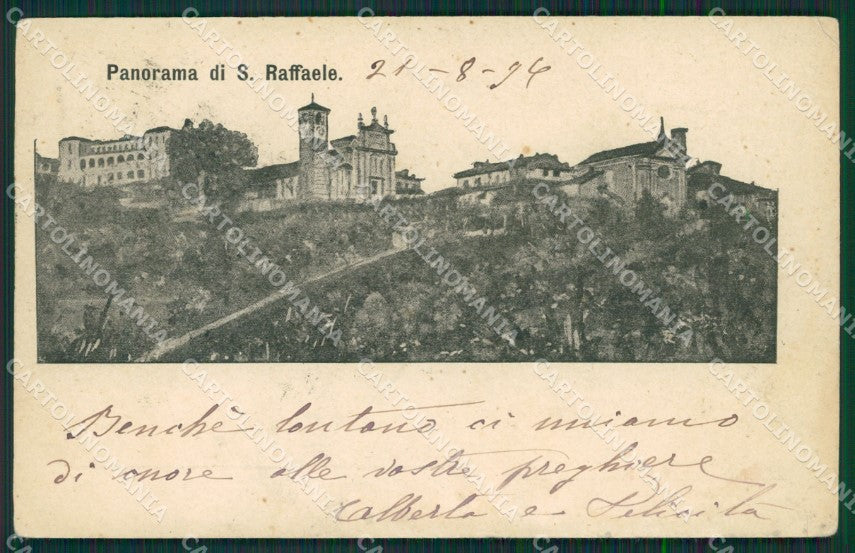 Panorama di S. Raffaele. 21-8-96
Benchè lontano ci uniamo
di cuore alle vostre preghiere
Alberta e Felicita
CARTOLINOMANIA